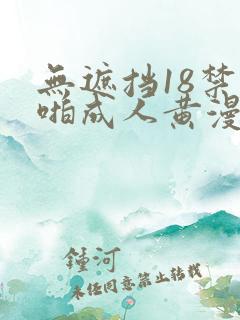 無遮挡18禁
啪成人黄漫
锺河
未任同意禁止转载